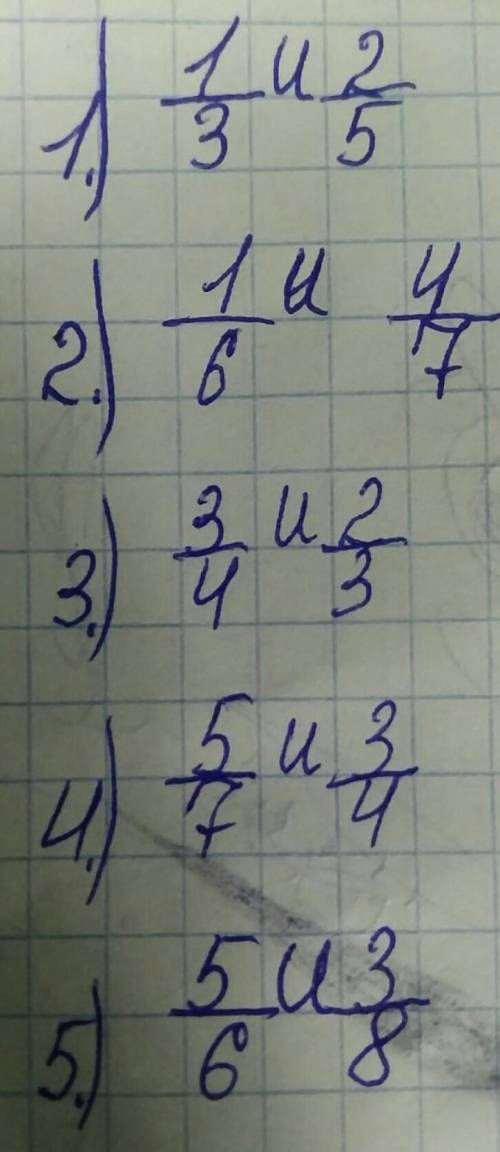 1.) 1/3 и 2/5
2.) 1/6 и 4/7
3.) 3/4 и 2/3
4.) 5/7 и 3/4
5.) 5/6 и 3/8